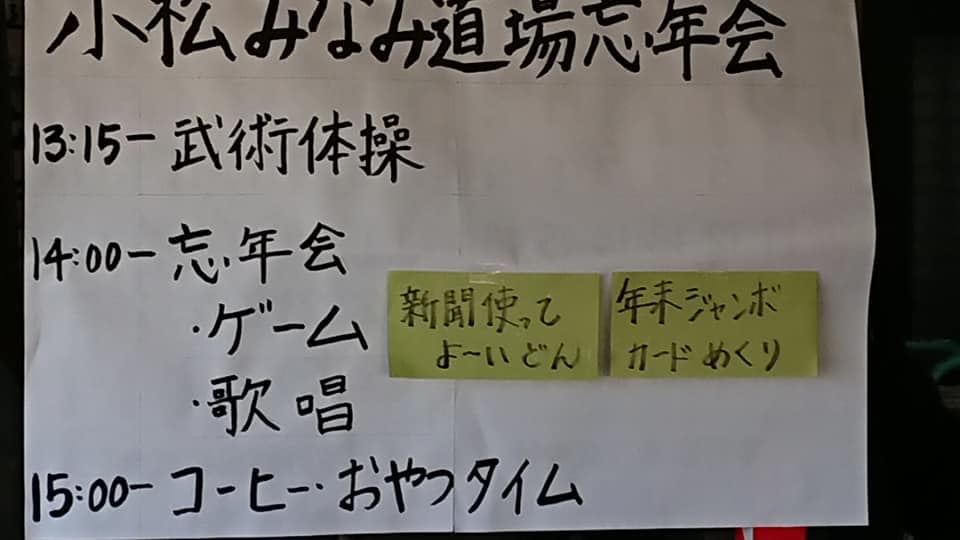 小松みなみ道場忘年会
13:15ー武術体操
14:00ー忘年会
・ゲーム
新聞使って
よ〜いどん
年末ジャンボ
カードめくり
・歌唱
15:00ーコーヒー・おやつタイム